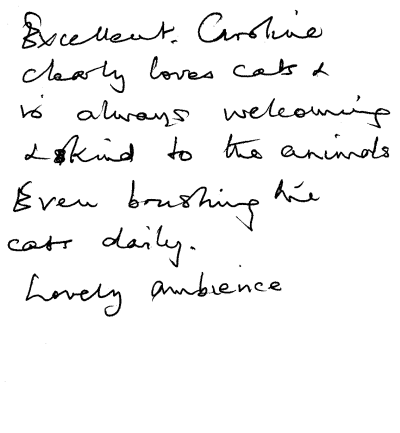 Excellent. Caroline
clearly loves cats &
is always welcoming
& kind to the animals
Even brushing the
cats daily.
Lovely ambience